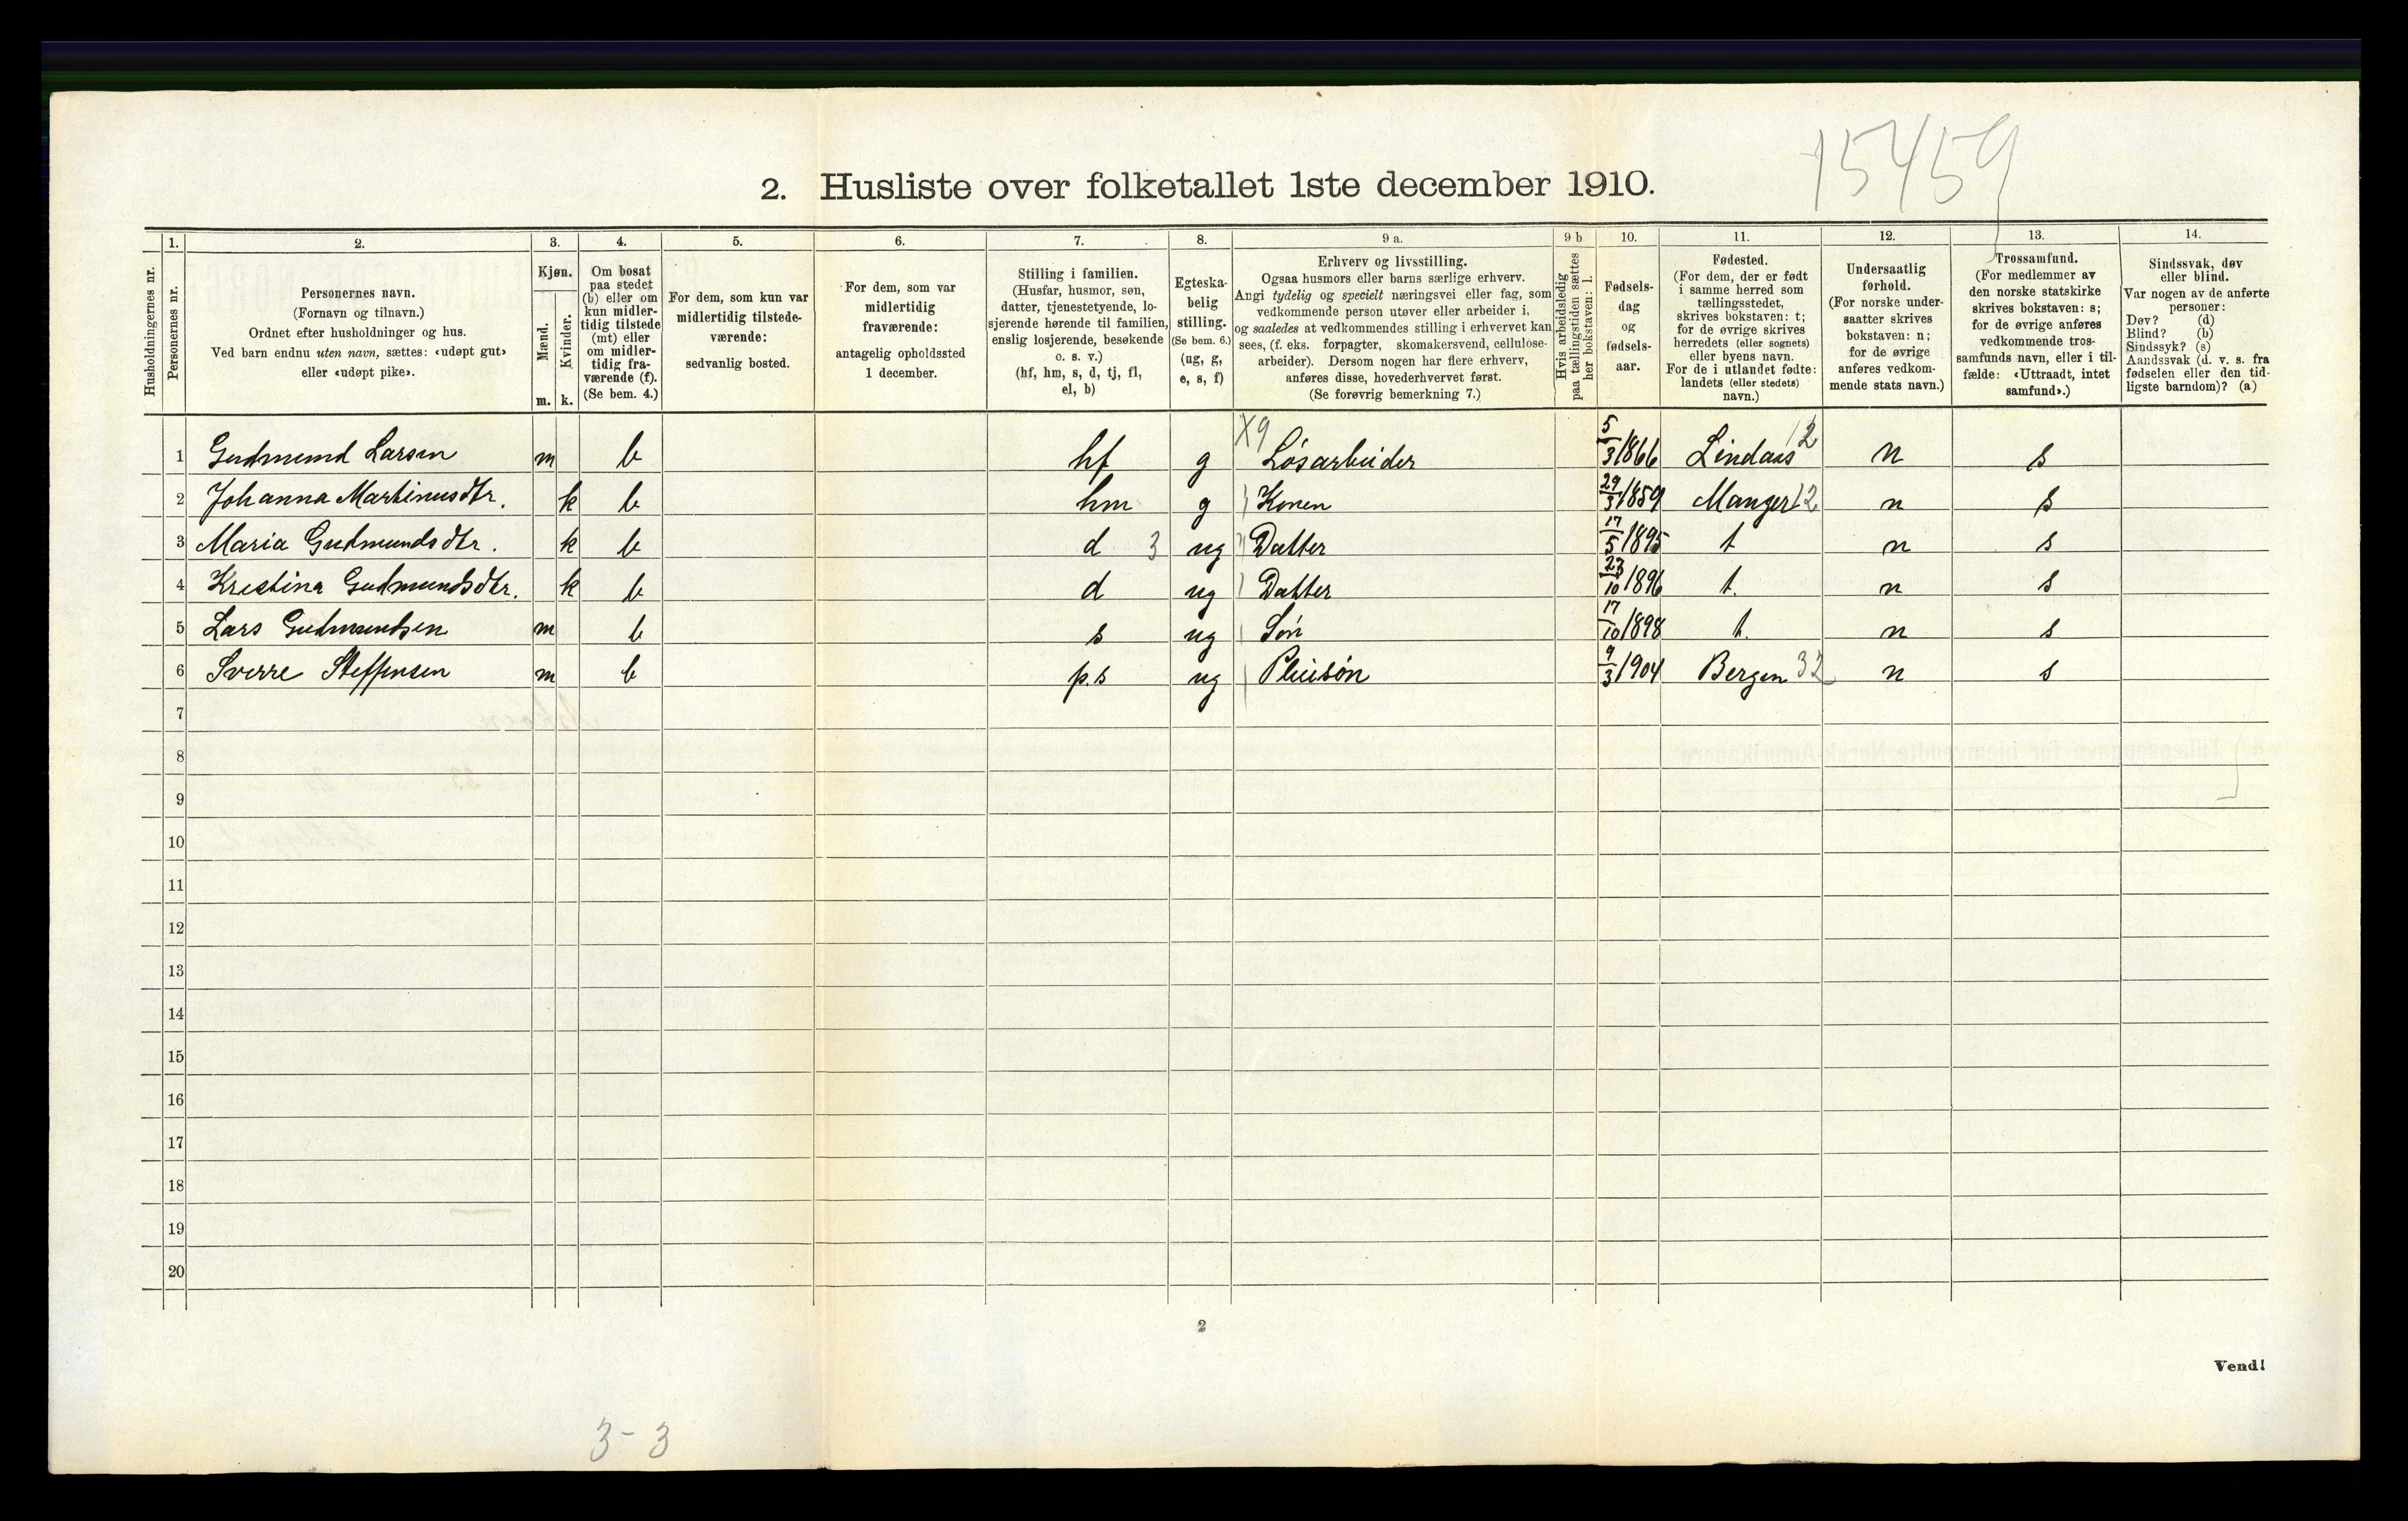 15459
2. Husliste over folketallet 1ste december 1910.
Husholdningernes nr.
1.
Personernes nr.
2.
Personernes navn.
(Fornavn og tilnavn.)
Ordnet efter husholdninger og hus.
Ved barn endnu uten navn, sættes: «udøpt gut»
eller «udøpt pike».
3.
Kjøn.
Mænd.
Kvinder.
m. k.
4.
Om bosat
paa stedet
(b) eller om
kun midler-
tidig tilstede
(mt) eller
om midler-
tidig fra-
værende (f).
(Se bem. 4.)
5.
For dem, som kun var
midlertidig tilstede-
værende:
sedvanlig bosted.
6.
For dem, som var
midlertidig
fraværende:
antagelig opholdssted
1 december.
7.
Stilling i familien.
(Husfar, husmor, søn,
datter, tjenestetyende, lo-
sjerende hørende til familien,
enslig losjerende, besøkende
o. s. v.)
(hf, hm, s, d, tj, fl,
el, b)
8.
Egteska-
belig
stilling.
(Se bem. 6.)
(ug, g,
e, s, f)
9 a.
Erhverv og livsstilling.
Ogsaa husmors eller barns særlige erhverv.
Angi tydelig og specielt næringsvei eller fag, som
vedkommende person utøver eller arbeider i,
og saaledes at vedkommendes stilling i erhvervet kan
sees, (f. eks. forpagter, skomakersvend, cellulose-
arbeider). Dersom nogen har flere erhverv,
anføres disse, hovederhvervet først.
(Se forøvrig bemerkning 7.)
9 b
Hvis arbeidsledig
paa tællingstiden sættes
her bokstaven: l.
10.
Fødsels-
dag
og
fødsels-
aar.
11.
Fødested.
(For dem, der er født
i samme herred som
tællingsstedet,
skrives bokstaven: t;
for de øvrige skrives
herredets (eller sognets)
eller byens navn.
For de i utlandet fødte:
landets (eller stedets)
navn.)
12.
Undersaatlig
forhold.
(For norske under-
saatter skrives
bokstaven: n;
for de øvrige
anføres vedkom-
mende stats navn.)
13.
Trossamfund.
(For medlemmer av
den norske statskirke
skrives bokstaven: s;
for de øvrige anføres
vedkommende tros-
samfunds navn, eller i til-
fælde: «Uttraadt, intet
samfund».)
14.
Sindssvak, døv
eller blind.
Var nogen av de anførte
personer:
Døv? (d)
Blind? (b)
Sindssyk? (s)
Aandssvak (d. v. s. fra
fødselen eller den tid-
ligste barndom)? (a)
1 Gudmund Larsen m b hf g X9 Løsarbeider 5/3 1866 Lindaas 12 n s
2 Johanna Martinusdtr. k b hm g Konen 29/3 1859 Manger 12 n s
3 Maria Gudmundsdtr. k b d 3 ug Datter 17/5 1895 t n s
4 Kristina Gudmundsdtr. k b d ug Datter 23/10 1896 t. n s
5 Lars Gudmundsen m b s ug Søn 17/10 1898 t. n s
6 Sverre Steffensen m b p.s ug Pleisøn 9/3 1904 Bergen 32 n s
7
8
9
10
11
12
13
14
15
16
17
18
19
20
2
Vend!
3-3